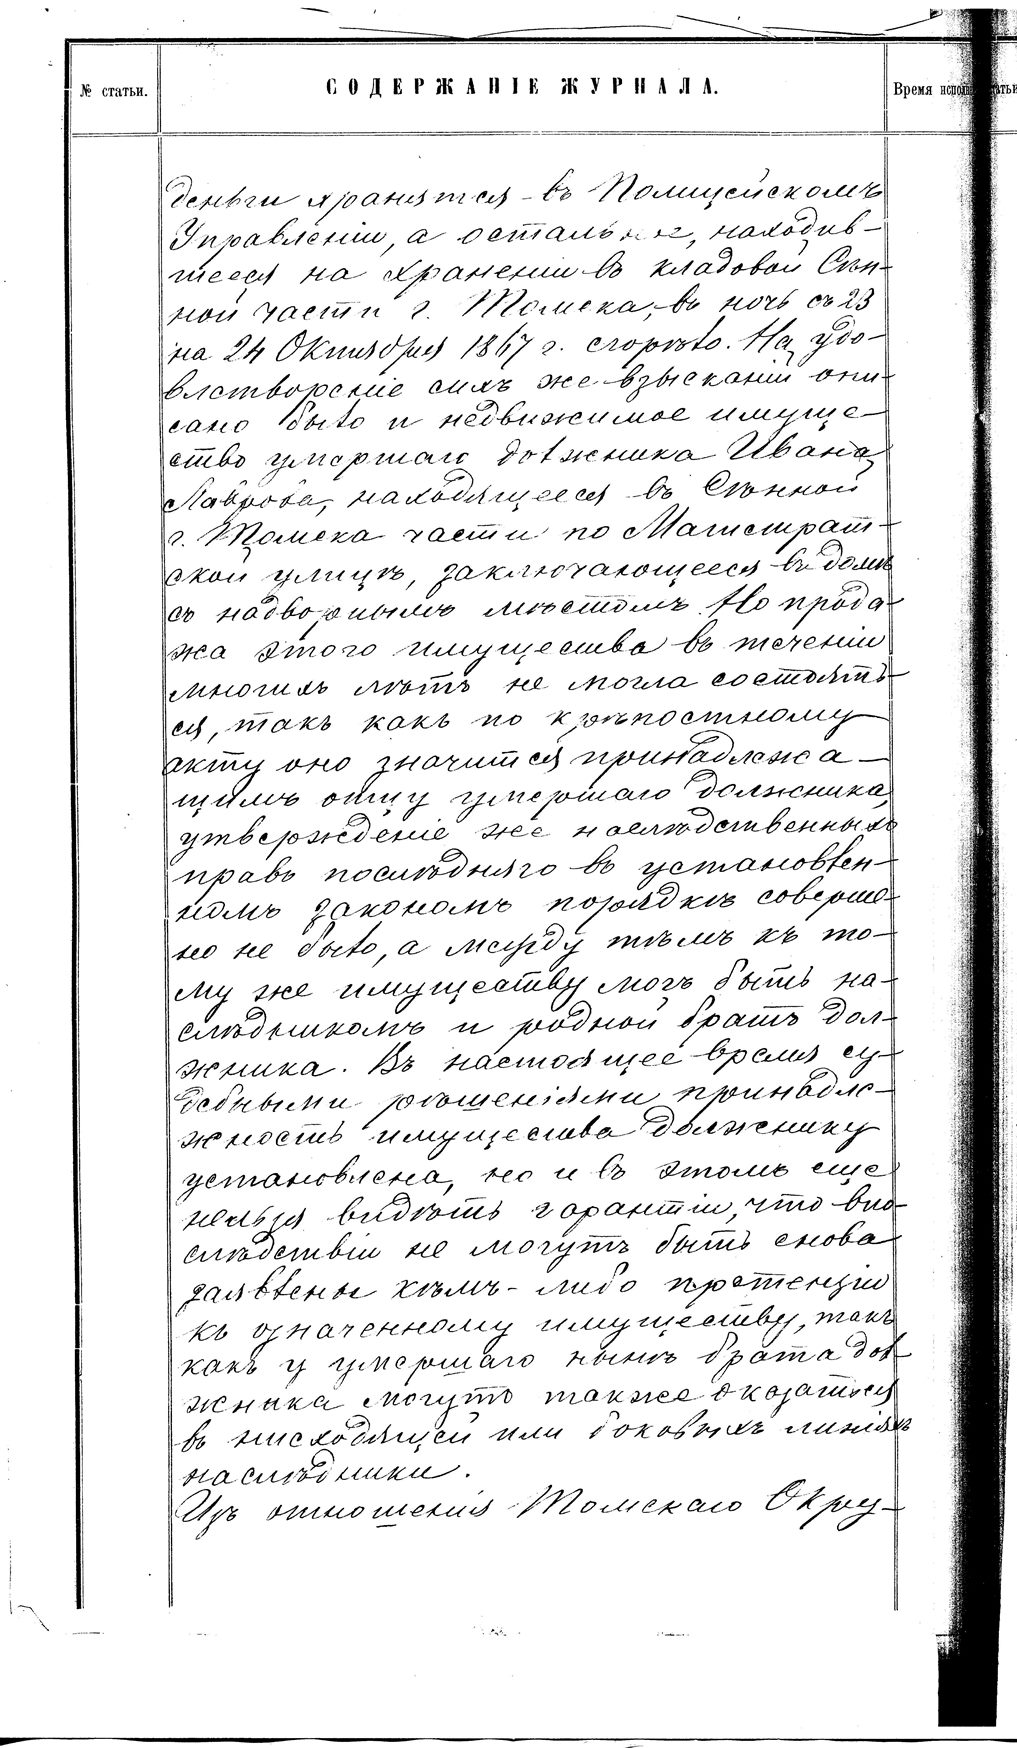 № статьи.
СОДЕРЖАНІЕ ЖУРНАЛА.
Время
деньги хранятся въ Полицейскомъ
Управленіи, а остальное, находив-
шееся на храненіи въ кладовой Сѣн-
ной части г. Томска, въ ночь съ 23
на 24 Октября 1867 г. сгорѣло. На удо-
влетвореніе сихъ же взысканій опи-
сано было и недвижимое имуще-
ство умершаго должника Ивана
Лаврова, находящееся въ Сѣнной
г. Томска части по Магистрат-
ской улицѣ, заключающееся въ домѣ
съ надворнымъ мѣстомъ. Но прода-
жа этого имущества въ теченіи
многихъ лѣтъ не могла состоять-
ся, такъ какъ по крѣпостному
акту оно значится принадлежа-
щимъ отцу умершаго должника,
утвержденіе же наслѣдственныхъ
правъ послѣдняго въ установлен-
номъ закономъ порядкѣ соверше-
но не было, а между тѣмъ къ то-
му же имуществу могъ быть на-
слѣдникомъ и родной братъ дол-
жника. Въ настоящее время су-
дебными рѣшеніями принадле-
жность имущества должнику
установлена, но и въ этомъ еще
нельзя видѣть гарантіи, что впо-
слѣдствіи не могутъ быть снова
заявлены кѣмъ-либо претензіи
къ означенному имуществу, такъ
какъ у умершаго нынѣ брата дол-
жника могутъ также оказаться
въ нисходящей или боковыхъ линіяхъ
наслѣдники.
Изъ отношенія Томскаго Окру-